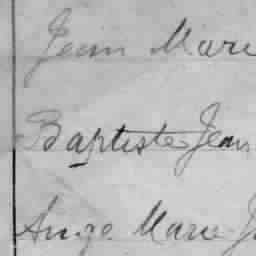 Jean Marie
Baptiste Jean
Ange Marie J